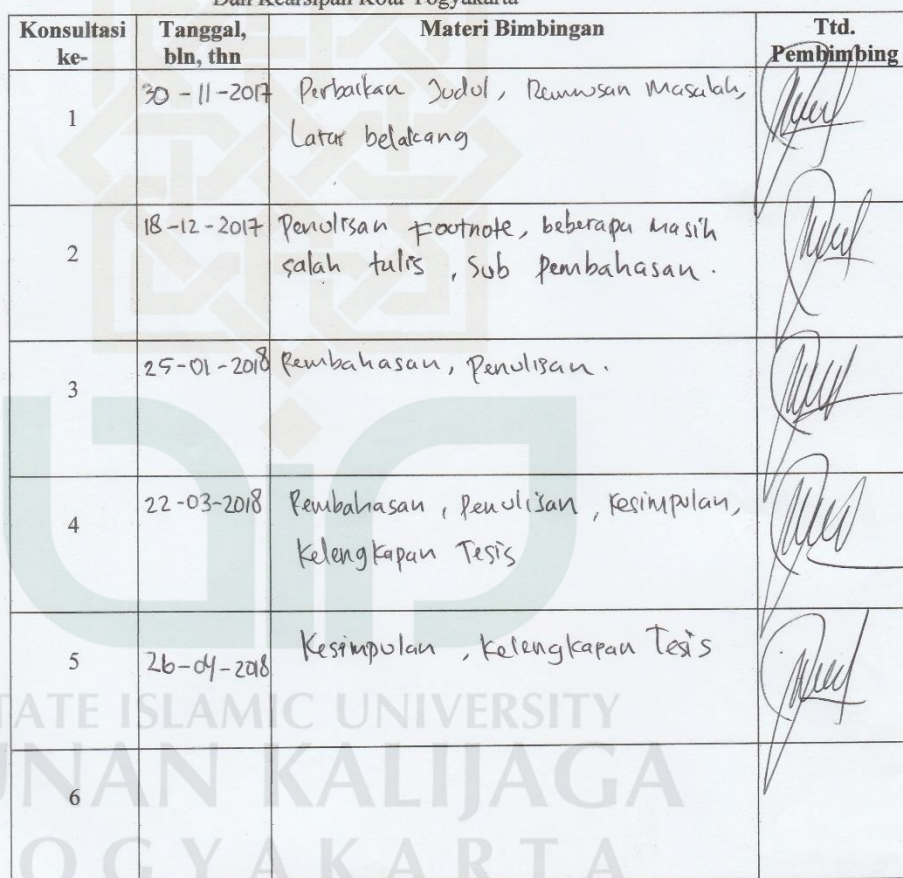 Dan Kearsipan Kota Yogyakarta
Konsultasi ke- Tanggal, bln, thn Materi Bimbingan Ttd. Pembimbing
1 30-11-2017 Perbaikan Judul, Rumusan Masalah,
Latar belakang
2 18-12-2017 Penulisan Footnote, beberapa masih
salah tulis, Sub Pembahasan.
3 25-01-2018 Pembahasan, Penulisan.
4 22-03-2018 Pembahasan, Penulisan, Kesimpulan,
Kelengkapan Tesis
5 26-04-2018 Kesimpulan, Kelengkapan Tesis
6
TATE ISLAMIC UNIVERSITY
UNAN KALIJAGA
OGYAKARTA